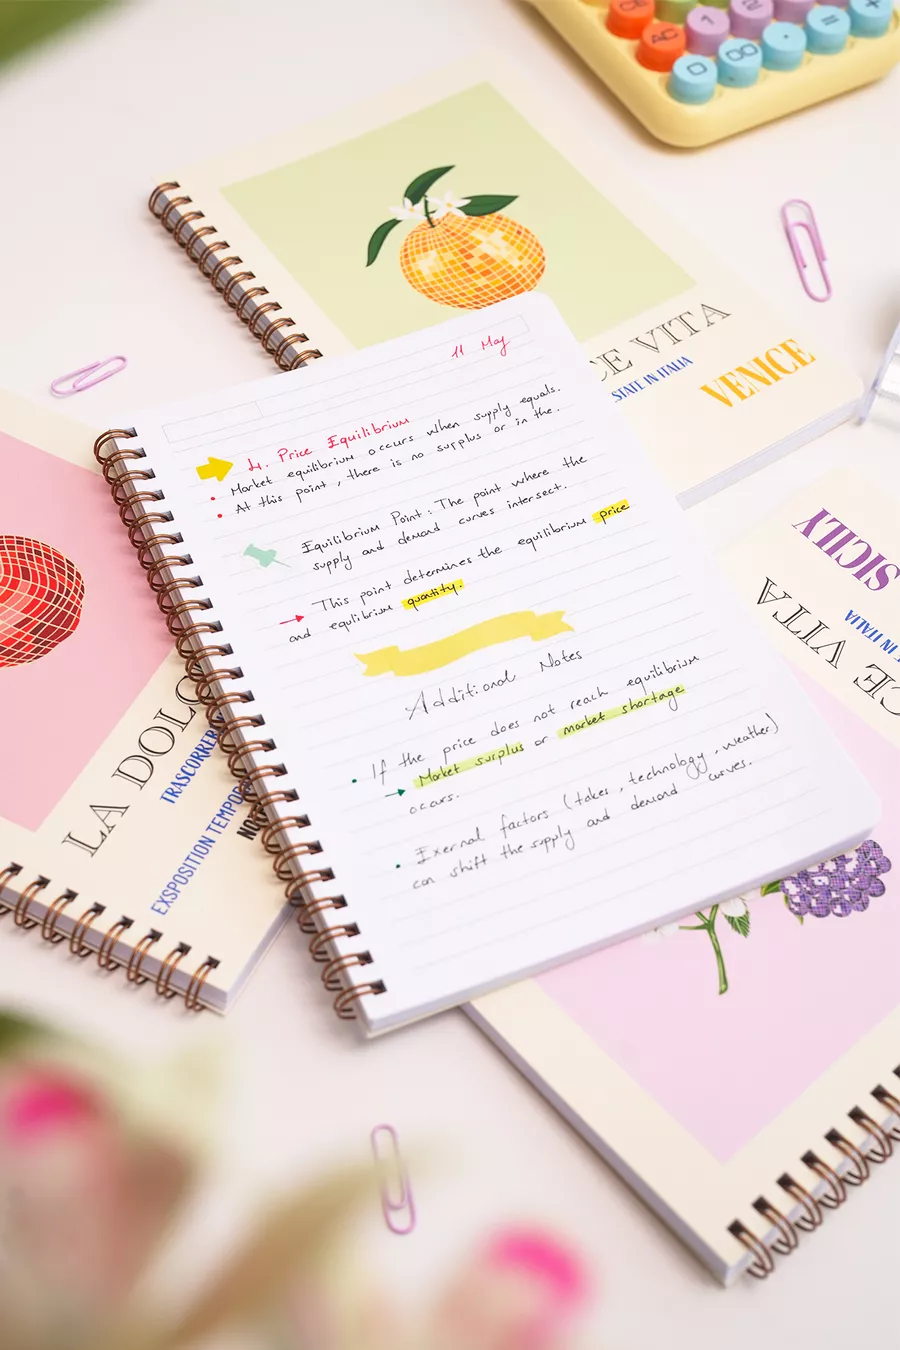 CE
AC
1
2
0
00
.
=
+
CE VITA
STATE IN ITALIA
VENICE
11 May
4. Price Equilibrium
• Market equilibrium occurs when supply equals.
• At this point, there is no surplus or in the.
Equilibrium Point: The point where the
supply and demand curves intersect.
→ This point determines the equilibrium price
and equlibrium quantity.
Additional Notes
• If the price does not reach equilibrium
→ Market surplus or market shortage
occurs.
• Exernal factors (takes, technology, weather)
can shift the supply and demand curves.
LA DOLC
TRASCORRER
EXSPOSITION TEMPOR
NOT
SICILY
CE VITA
IN ITALIA